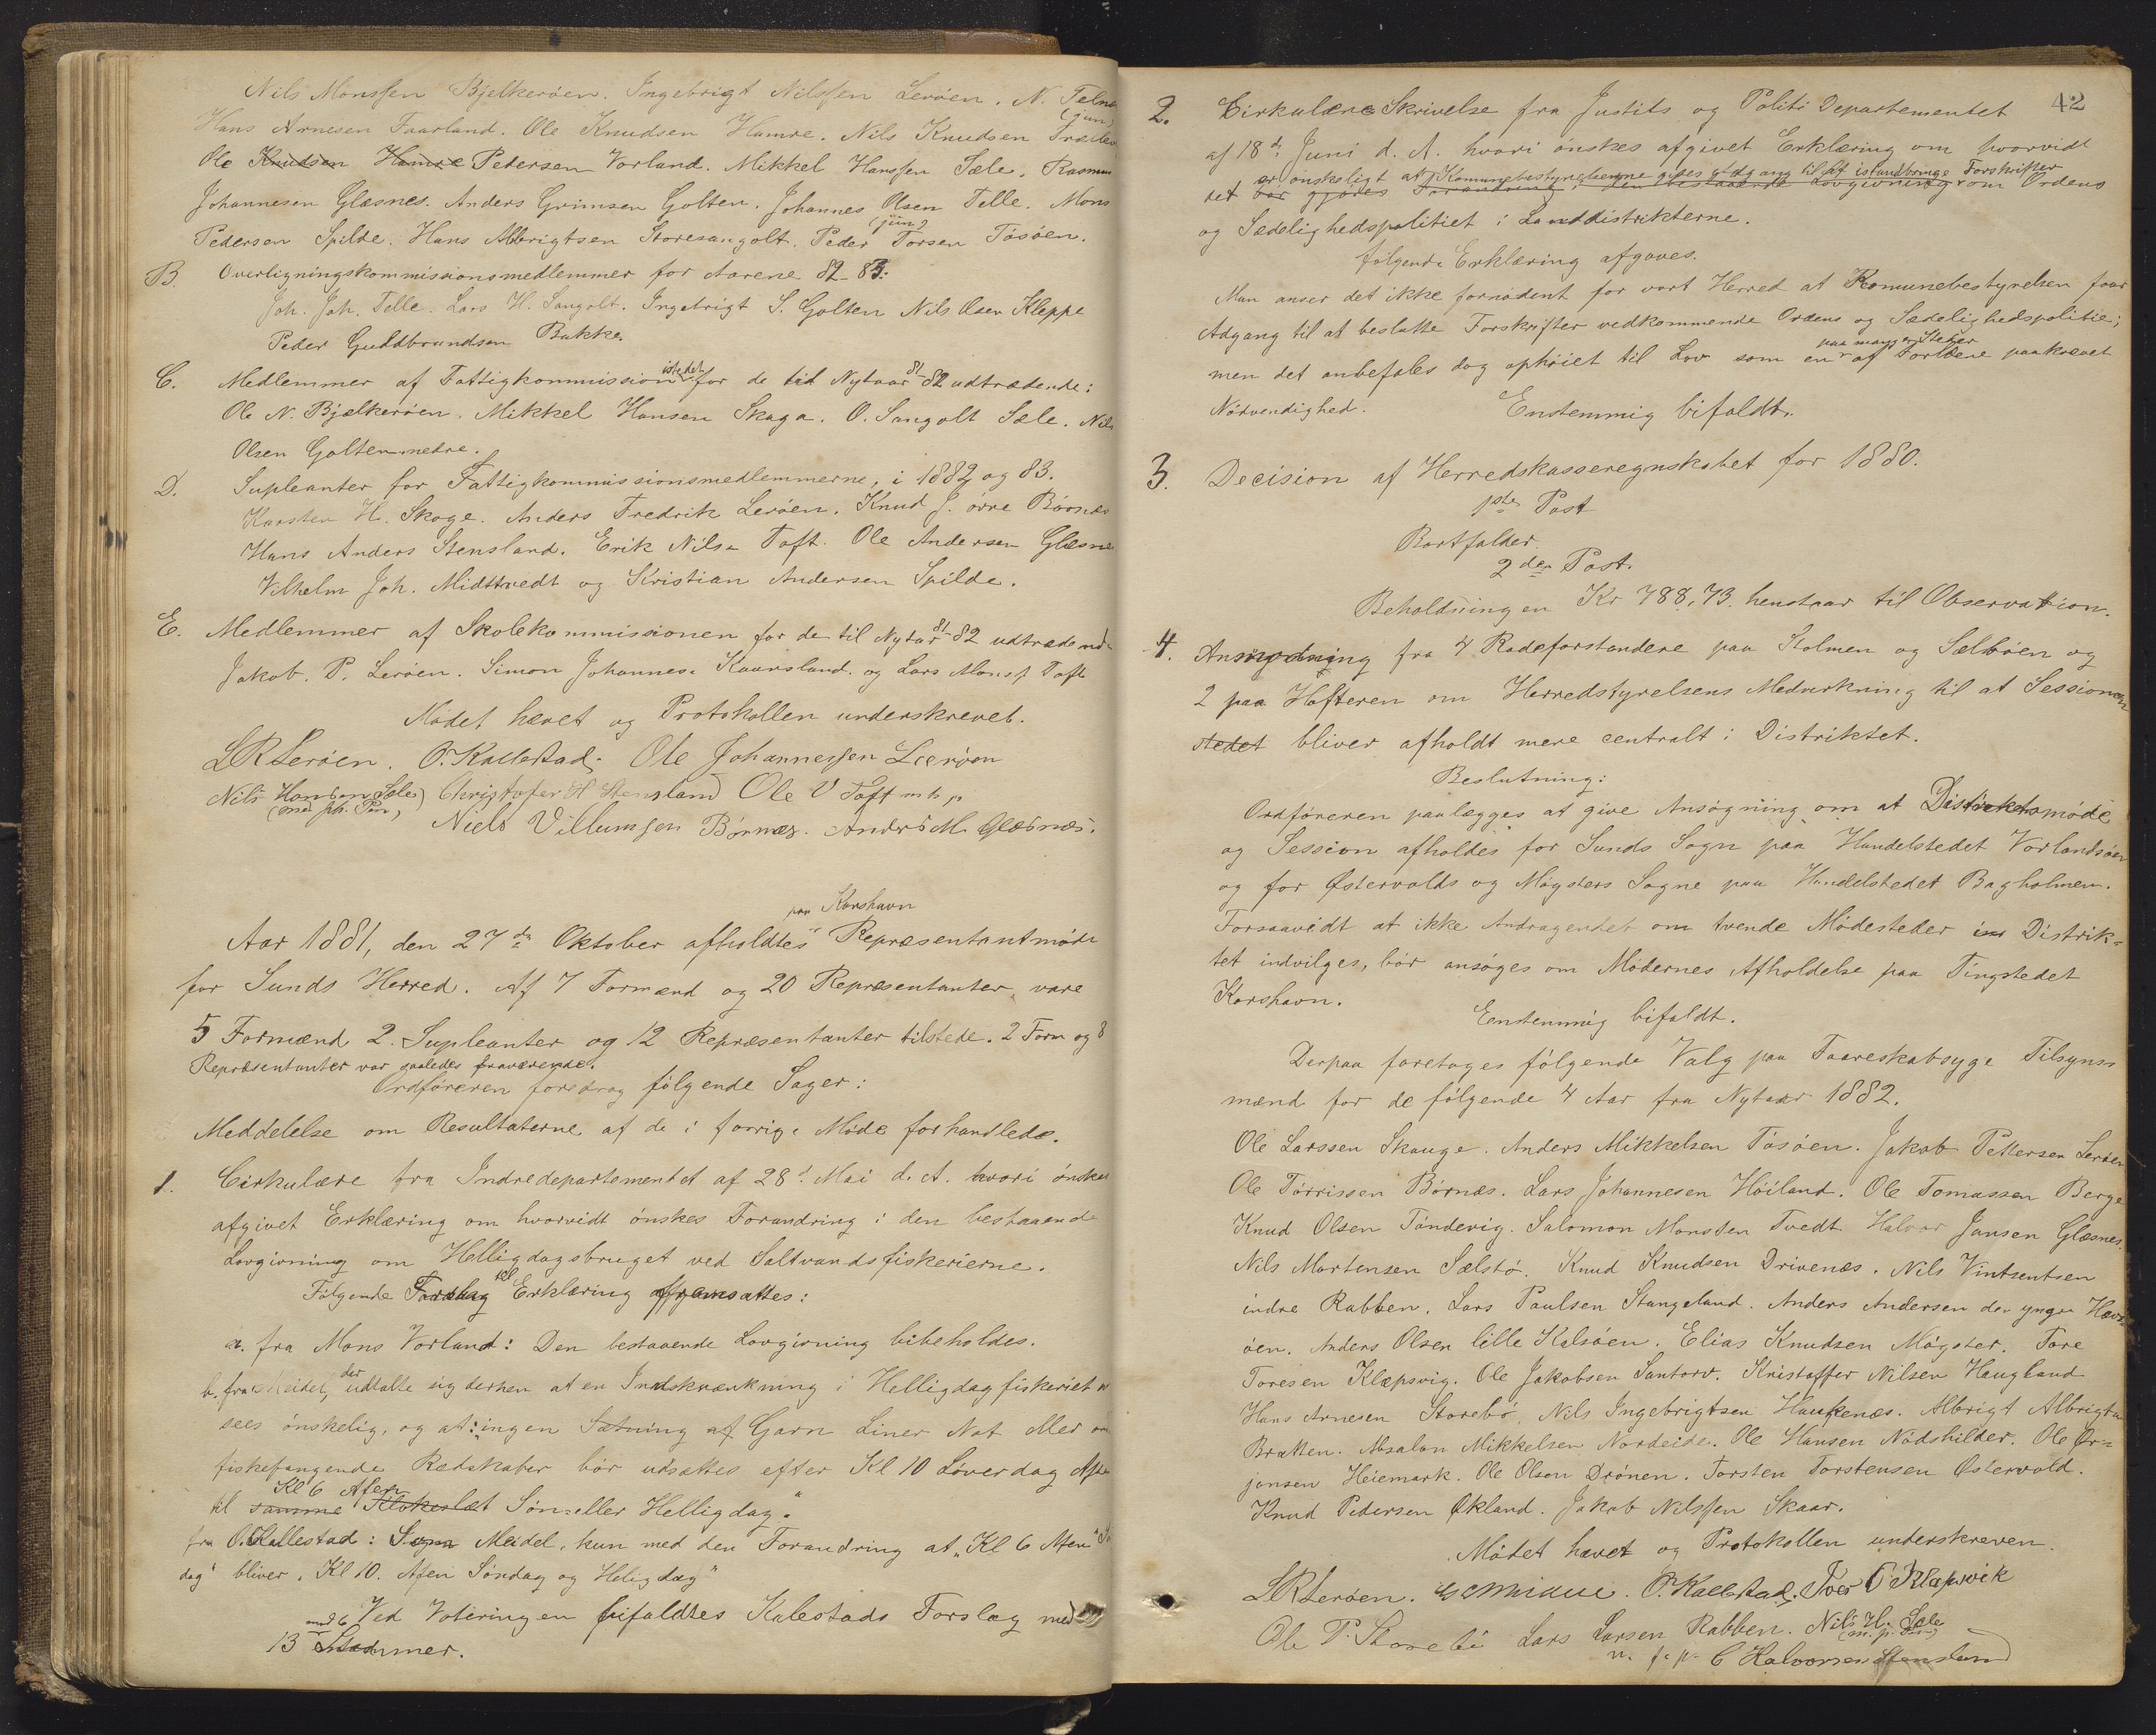 Nils Monssen Bjelkeröen. Ingebrigt Nilssen Leröen. N. Telnæ
(jun)
Hans Arnesen Faarland. Ole Knudsen Hamre. Nils Knudsen Træle
Ole Knudsen Hamre Petersen Vorland. Mikkel Hanssen Sæle. Rasmus
Johannesen Glæsnes. Anders Grimsen Golten. Johannes Olsen Telle. Mons
Pedersen Spilde. Hans Albrigtsen Storesangolt. Peder (jun) Torsen Tösöen.
B. Overligningskommissionsmedlemmer for Aarene 82-83:
Joh. Joh. Telle. Lars H. Sangolt. Ingebrigt S. Golten Nils Olsen Kleppe
Peder Guldbrandsen Bakke.
C. Medlemmer af Fattigkommission istedet for de tid Nytaar 81-82 udtrædende:
Ole N. Bjelkeröen. Mikkel Hansen Skaga. O. Sangolt Sæle. Nils
Olsen Golten nedre.
D. Supleanter for Fattigkommissionsmedlemmerne, i 1882 og 83.
Karsten H. Skoge. Anders Fredrik Leröen. Knud J. övre Börnæs
Hans Anders Stensland. Erik Nilsn Toft. Ole Andersen Glæsne
Vilhelm Joh. Midttvedt og Kristian Andersen Spilde.
E. Medlemmer af Skolekommissionen for de til Nytar 81-82 udtrædend
Jakob. P. Leröen. Simon Johannes. Kaursland. og Lars Monss Toft
Mödet hævet og Protokollen underskrevet.
LR Leröen. O. Kallestad. Ole Johannessen Leeröen
Nils Hansen Sæle Christofer H Stensland Ole V Toft m. p.
(med ph. Pen)
Niels Villumsen Börnæs. Anders M. Glæsnæs.
paa Korshavn
Aar 1881, den 27de Oktober afholdtes Repræsentantmöde
for Sunds Herred. Af 7 Formænd og 20 Repræsentanter vare
5 Formænd 2. Supleanter og 12 Repræsentanter tilstede. 2 Form og 8
Repræsentanter var saaledes fraværende.
Ordföreren foredrog fölgende Sager:
Meddelelse om Resultaterne af de i forrige Möde forhandlede.
1. Cirkulære fra Indredepartementet af 28d Mai d. A. hvori önskes
afgivet Erklæring om hvorvidt önskes Forandring i den bestaaende
Lovgivning om Helligdagsbruget ved Saltvandsfiskerierne.
Fölgende Forslag til Erklæring fremsattes:
a. fra Mons Vorland: Den bestaaende Lovgivning bibeholdes.
b. fra Meidel, der udtalte sig derhen at en Indskrænkning i Helligdagfiskeriet
sees önskelig, og at: ingen Sætning af Garn Liner Not eller
fiskefangende Redskaber bör udsættes efter Kl 10 Löverdag Aften
Kl 6 Aften
til samme Klokeslæt Sön- eller Helligdag."
fra O. Kallestad: Som Meidel, kun med den Forandring at "Kl 6 Aften
dag" bliver "Kl 10. Aften Söndag og Helligdag"
Ved Voteringen bifaldtes Kalestads Forslag med
mod 6
13 Stemmer.
42
2. Cirkulære Skrivelse fra Justits og Politi Departementet
af 18de Juni d. A. hvori önskes afgivet Erklæring om hvorvidt
er önskeligt at Komunebestyrelserne gives Adgang til at istandbringe Forskrifter
det bör gjöres Forandring i den bestaaende Lovgivning om Ordens
og Sædelighedspolitiet i Landdistrikterne.
fölgende Erklæring afgaves.
Man anser det ikke fornödent for vort Herred at Komunebestyrelsen faar
Adgang til at beslutte Forskrifter vedkommende Ordens og Sædelighedspolitie;
paa mange Steder
men det anbefales dog ophöiet til Lov som en af Fortdene paakrævet
Nödvendighed. Enstemmig bifaldt.
3. Decision af Herredskasseregnskabet for 1880.
1ste Post
Bortfalder.
2den Post.
Beholdningen Kr 788,73. henstaar til Observation.
4. Ansögning fra 4 Rodeforstandere paa Stolmen og Selböen og
2 paa Hufteren om Herredstyrelsens Medvirkning til at Sessionen
stedet bliver afholdt mere centralt i Distriktet.
Beslutning:
Ordföreren paalægges at give Ansögning om at Distriktsmöde
og Session afholdes for Sunds Sogn paa Handelstedet Vorlandsöen
og for Østervolds og Mögsters Sogne paa Handelstedet Bagholmen.
Forsaavidt at ikke Andragendet om tvende Mödesteder in Distrik-
tet indvilges, bör ansöges om Mödernes Afholdelse paa Tingstedet
Korshavn.
Eenstemmig bifaldt.
Derpaa foretages fölgende Valg paa Faareskabsyge Tilsyns-
mænd for de fölgende 4 Aar fra Nytaar 1882.
Ole Larssen Skauge. Anders Mikkelsen Tösöen. Jakob Pettersen Leröen
Ole Törrissen Börnæs. Lars Johannesen Höiland. Ole Tomassen Berge
Knud Olsen Töndevig. Salomon Monsten Tvedt. Halvor Jansen Glæsnes.
Nils Mortensen Sælstö. Knud Knudsen Drivenæs. Nils Vintsentsen
indre Rabben. Lars Paulsen Stangeland. Anders Andersen den yngre Havs-
öen. Anders Olsen lille Kalsöen. Elias Knudsen Mögster. Tore
Toresen Klepsvig. Ole Jakobsen Santorv. Kristoffer Nilsen Haugland
Hans Arnesen Storebö. Nils Ingebrigtsen Haukenæs. Albrigt Albrigts
Bratten. Absalon Mikkelsen Nordeide. Ole Hansen Nödshilder. Ole Ør-
jansen Heiemark. Ole Olsen Drönen. Torsten Torstensen Østervold.
Knud Pedersen Økland. Jakob Nilssen Skaar.
Mödet hævet og Protokollen underskreven.
LR Leröen. O. Kallestad. Tore T Klepsvik
Ole P. Storebö Lars Larsen Rabben. Nils H. Sæle
(m. p. Pen)
C Halvorsen Stensland